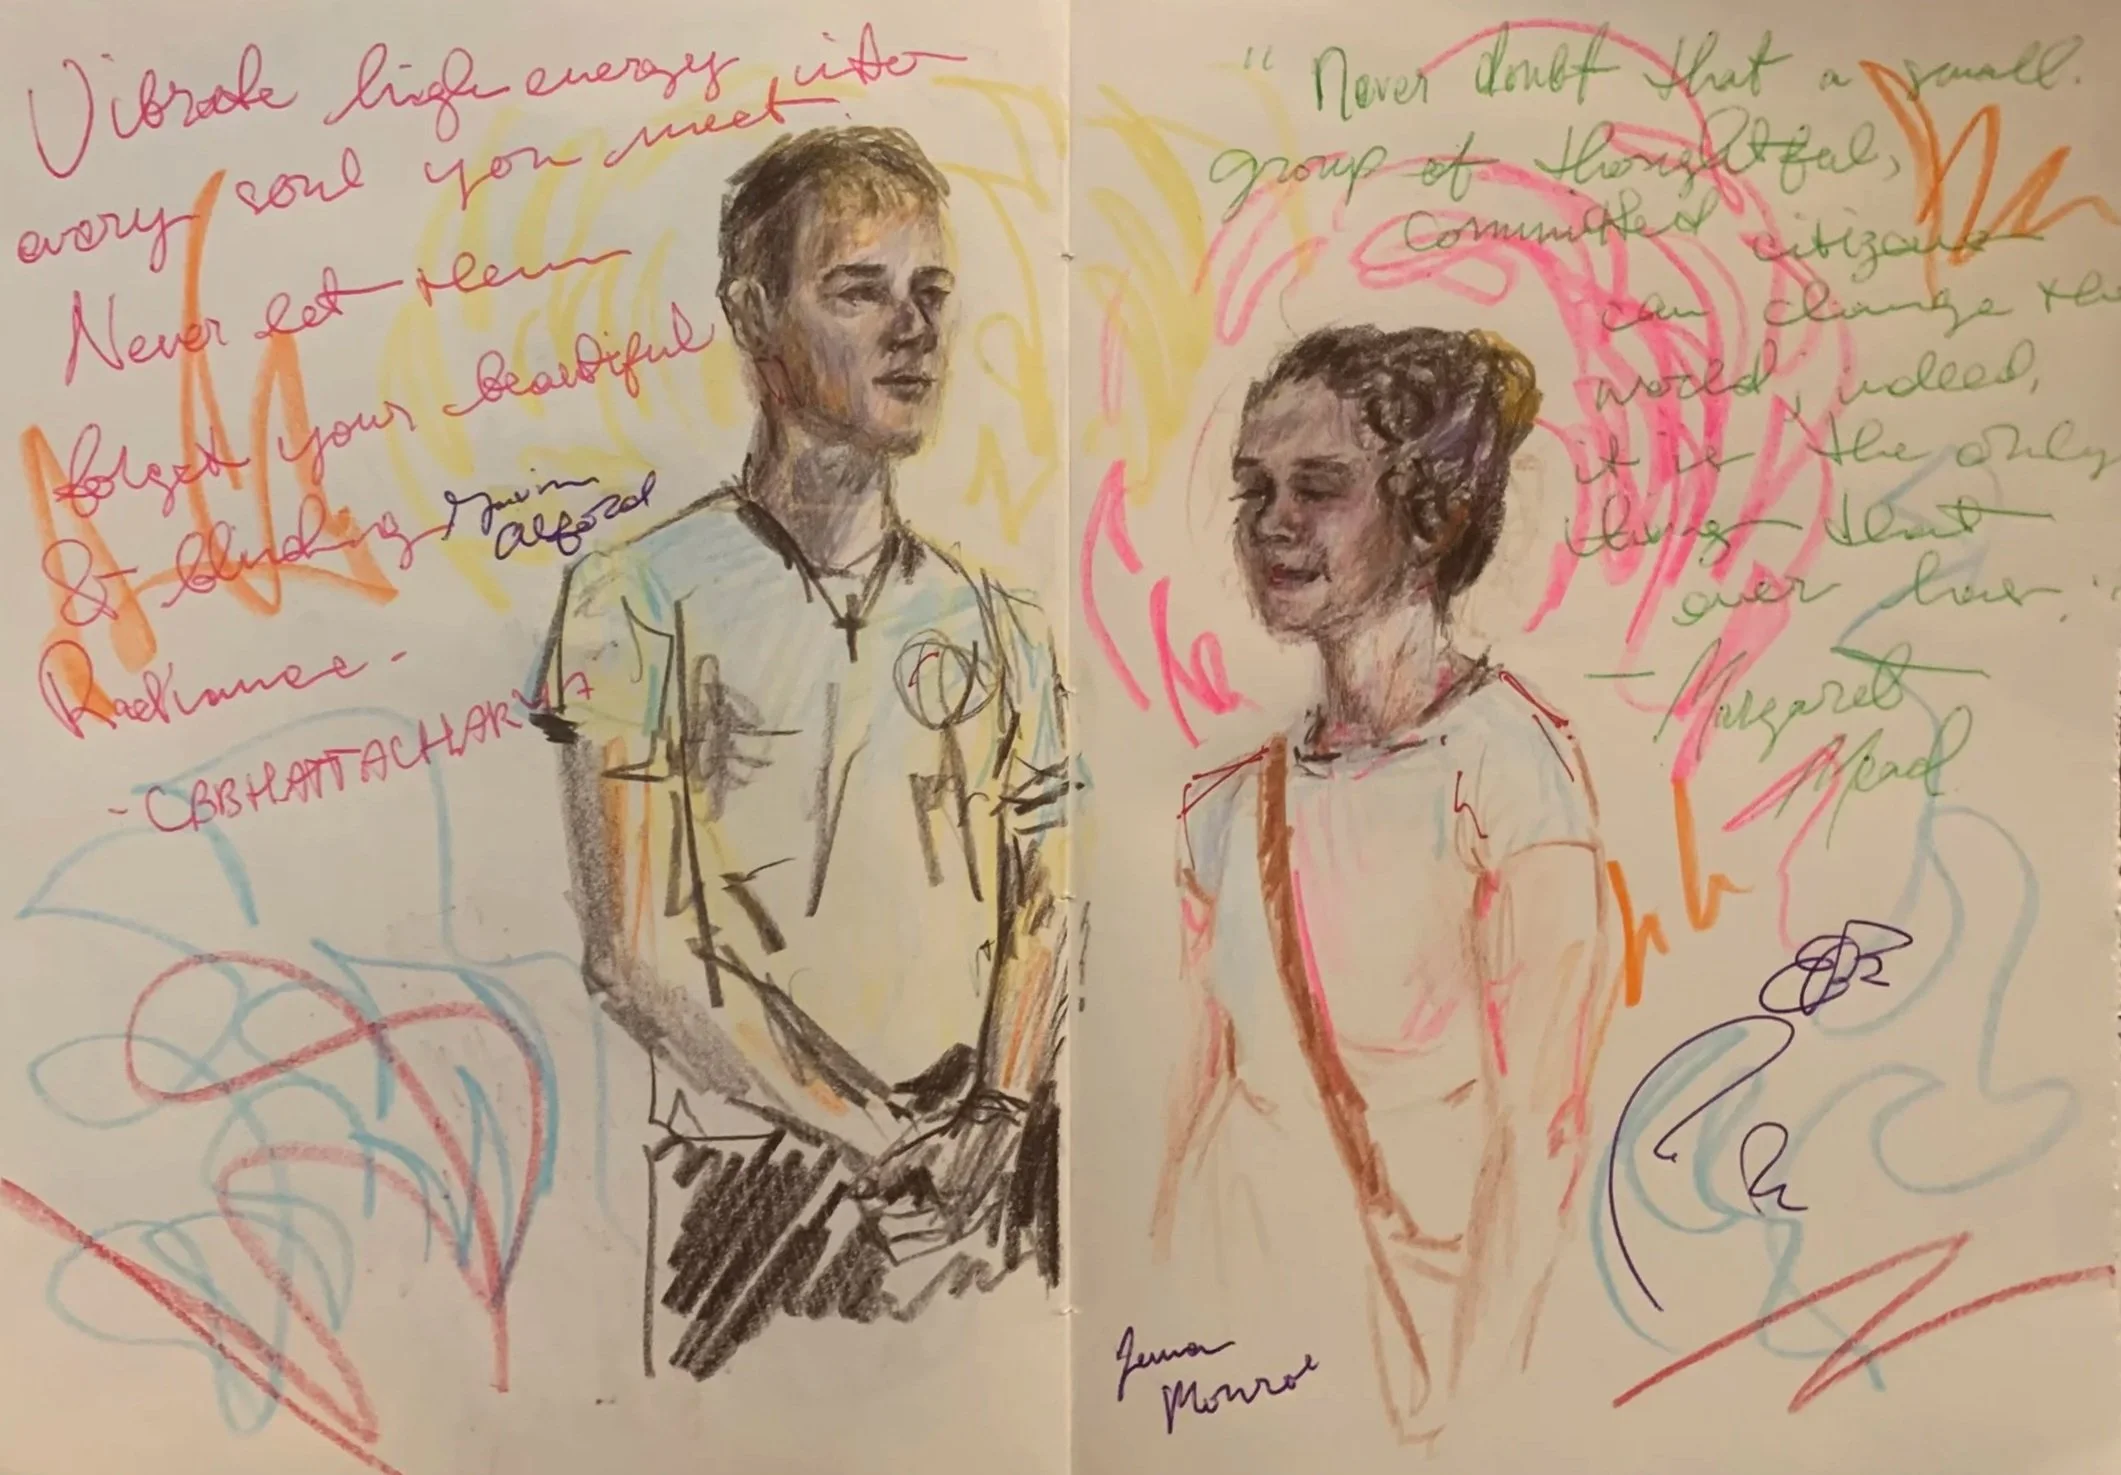 Vibrate high energy, into
every soul you meet.
Never let them
forget your beautiful
& blinding
Radiance -
- CBBHATTACHARYA
Gavin
Alford
"Never doubt that a small
group of thoughtful,
committed citizens
can change the
world, indeed,
it is the only
thing that
ever has."
- Margaret
Mead
Jenna
Monroe